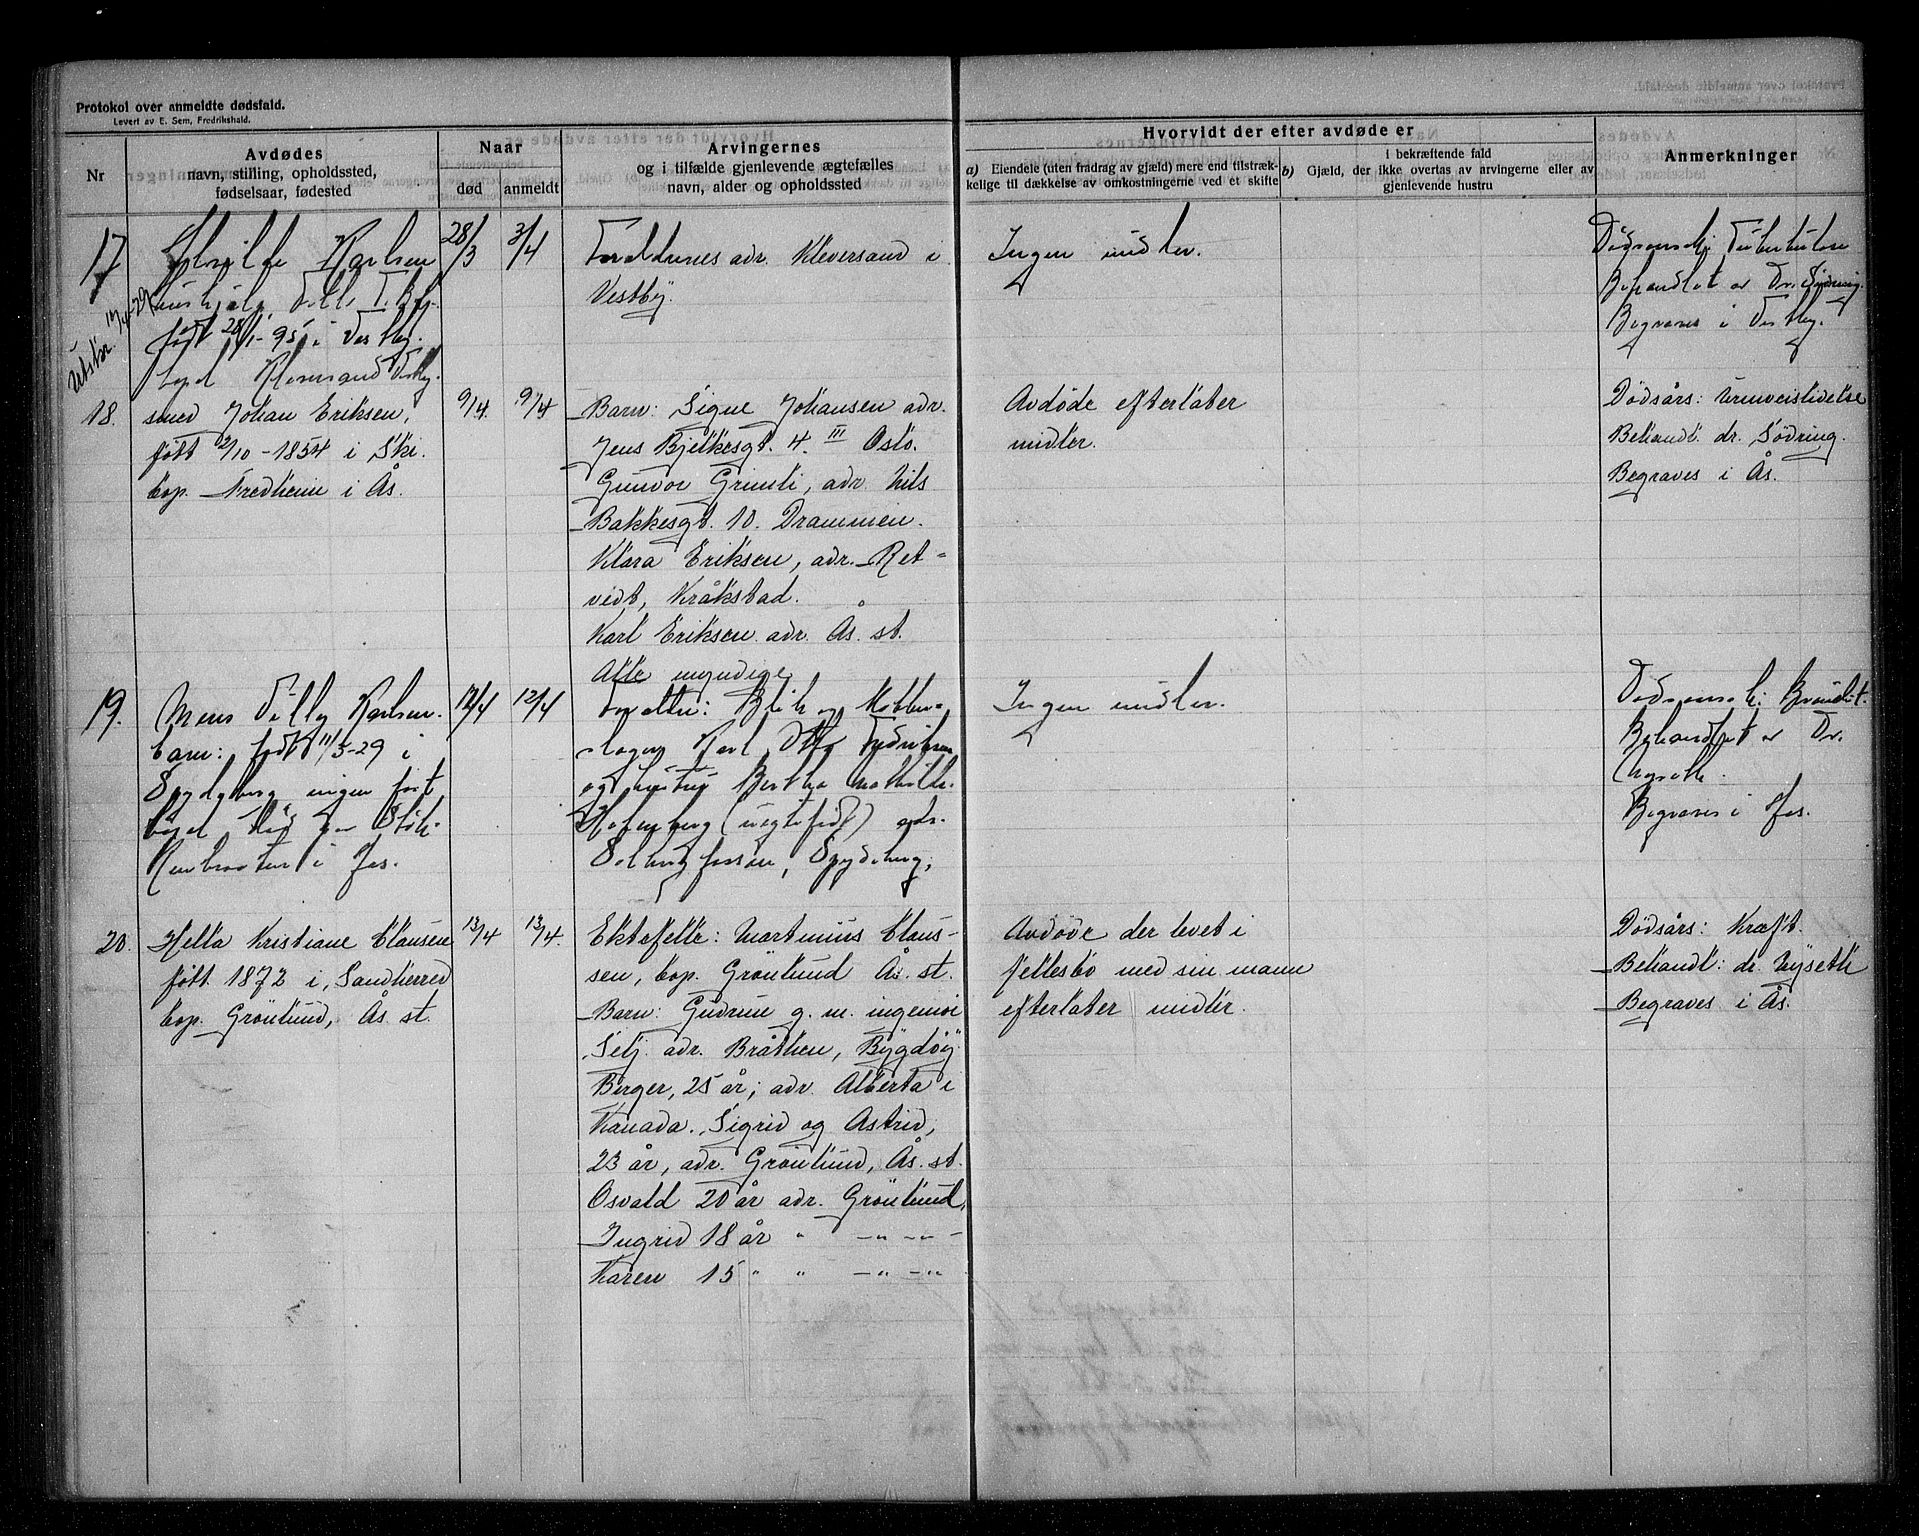 Protokol over anmeldte dødsfald.
Levert av E. Sem, Fredrikshald.
Nr
Avdødes
navn, stilling, opholdssted,
fødselsaar, fødested
Naar
død
anmeldt
Arvingernes
og i tilfælde gjenlevende ægtefælles
navn, alder og opholdssted
Hvorvidt der efter avdøde er
a) Eiendele (uten fradrag av gjæld) mere end tilstræk-
kelige til dækkelse av omkostningerne ved et skifte
i bekræftende fald
b) Gjæld, der ikke overtas av arvingerne eller av
gjenlevende hustru
Anmerkninger
17
Karlsen
født 28/1-95 i Vestby.
bopel Vestby.
28/3
3/4
Foreldrenes adr. Kleversand i
Vestby.
Ingen midler.
Dødsårsak: Tuberkulose
Behandlet av Dr. Sødring.
Begraves i Vestby.
Utskr.
18.
smed Johan Eriksen,
født 2/10-1854 i Ski.
bop. Fredheim i Ås.
9/4.
9/4
Barn: Signe Johansen adr.
Jens Bjelkesgt. 4 III Oslo.
Gunvor Grimli, adr. Nils
Bakkesgt. 10. Drammen.
Klara Eriksen, adr. Ret-
vedt, Kråkstad.
Karl Eriksen adr. Ås. st.
Alle myndige
Avdøde efterlater
midler.
Dødsårs: Urinveislidelse
Behandl. dr. Sødring.
Begraves i Ås.
19.
Karlsen.
barn: født 11/3-29 i
Spydeberg ingen fast
bopel
i Aas.
12/4
12/4
Foreldre: Blik og
Karl Otto Fredriksen
og hustru Bertha Mathilde
adr.
Solbergfossen, Spydeberg,
Ingen midler.
Dødsårsak: Bronchit.
Behandlet av Dr.
Nyseth.
Begraves i Aas.
20.
Helka Kristiane Clausen
født 1872 i Sandherred
bop. Grönlund, Ås st.
13/4
13/4.
Ektefelle: Martinius Claus-
sen, bop. Grönlund Ås. st.
Barn: Gudrun g. m. ingeniör
Selj. adr. Bråthen, Bygdöy.
Birger, 25 år; adr. Alberta i
Kanada. Sigrid og Astrid,
23 år, adr. Grönlund, Ås. st.
Osvald 20 år adr. Grönlund,
Ingrid 18 år " -"- -"-
Karen 15 " " -"- -"-
Avdöde der levet i
fellesbo med sin mann
efterlater midler.
Dödsårs: Kræft.
Behandl: dr. Nyseth
Begraves i Ås.